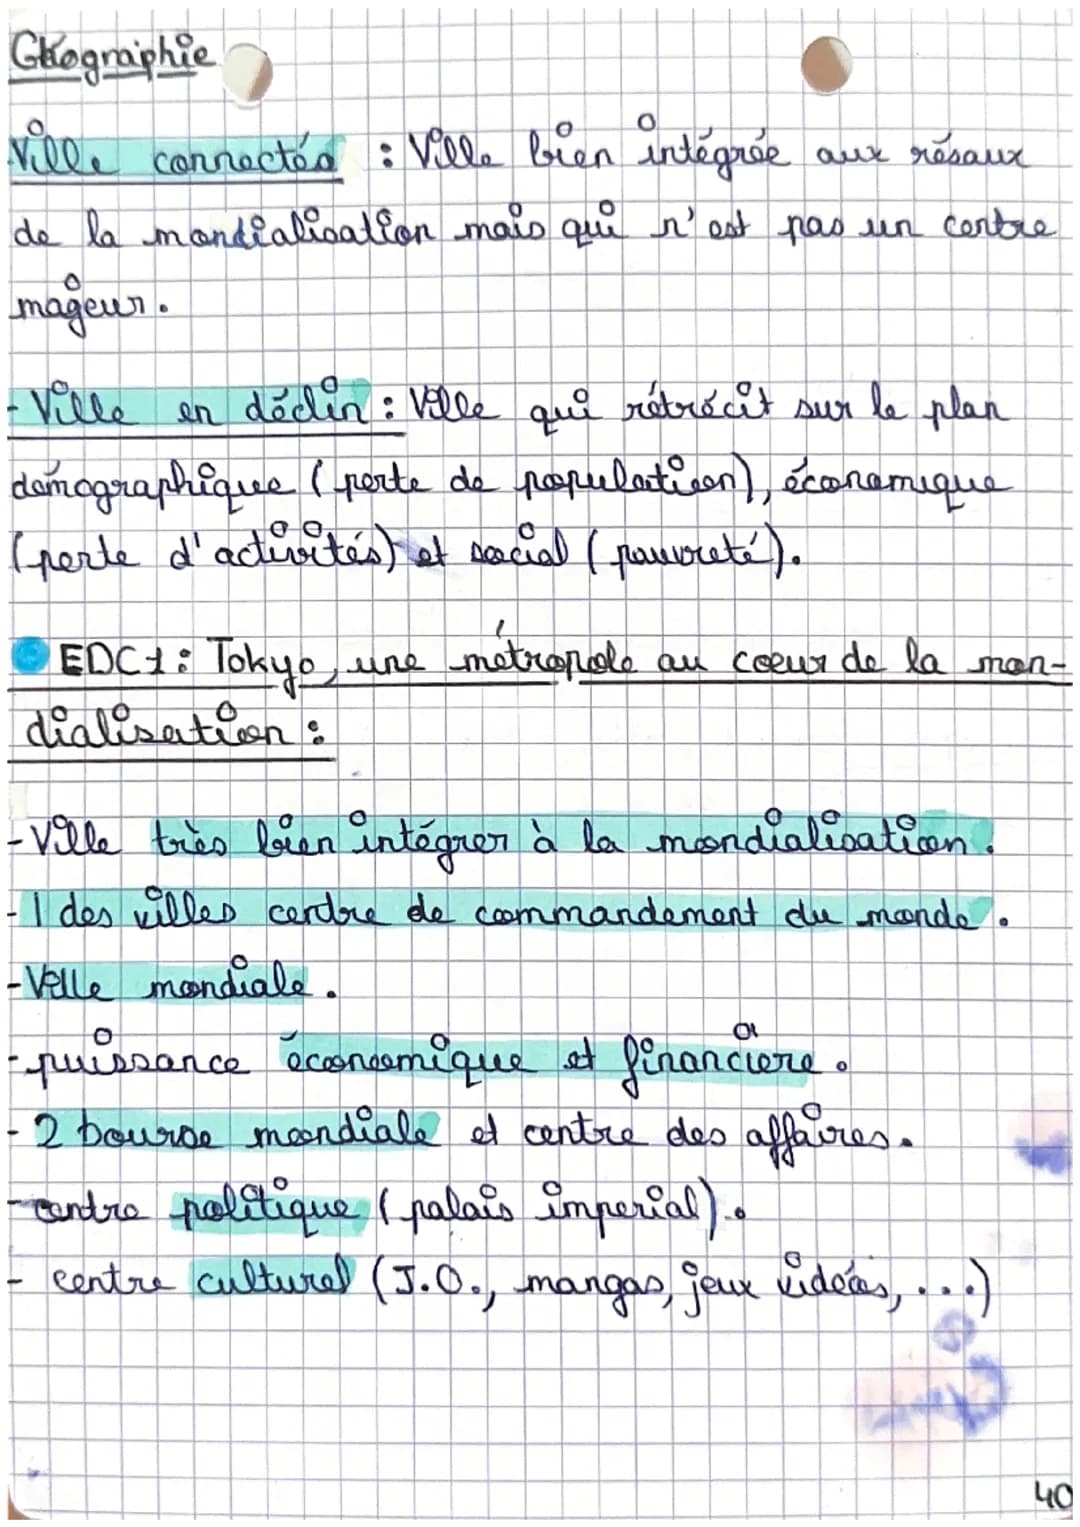 Géographie
Ville connectés : Ville bien intégrée aux résaux
de la mondialisation mais qui n'est pas un centre
mageur.
- Ville en déclin : Ville qui rétrécit sur le plan
démographique (perte de population), économique
(perte d'activités) et social (pauvreté).
EDC1 : Tokyo, une métropole au coeur de la mon-
dialisation :
- Ville très bien intégrer à la mondialisation.
- 1 des villes centre de commandement du monde.
- Ville mondiale.
- puissance économique et financiere.
- 2 bourse mondiale et centre des affaires.
- centre politique (palais imperial).
- centre culturel (J.O., mangas, jeux vidéos, ...)
40